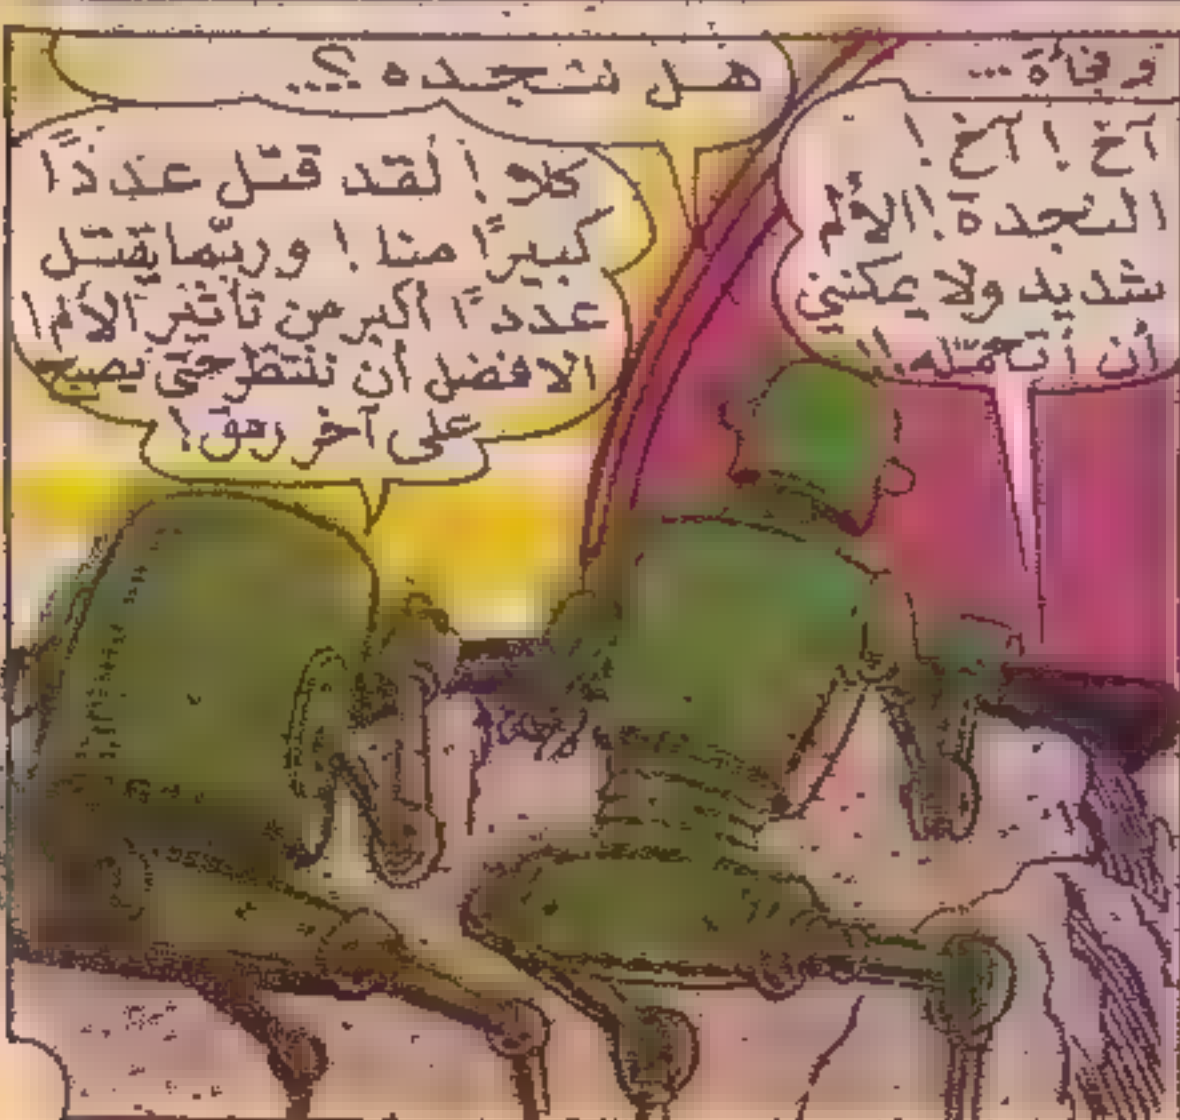 وفجأة ...
آخ ! آخ !
النجدة ! الألم
شديد ولا يمكنني
أن أتحمّله !!
هل ننجده ؟...
كلا ! لقد قتل عددًا
كبيرًا منا ! وربّما يقتل
عددًا أكبر من تأثير الألم !
الافضل أن ننتظر حتى يصبح
على آخر رمق !